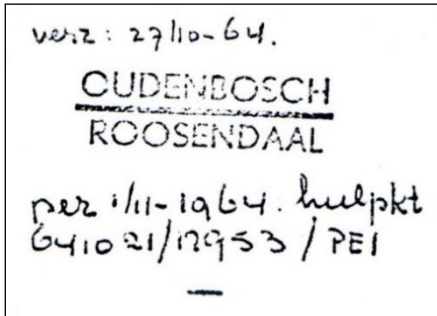 verz: 27/10-64.
OUDENBOSCH
ROOSENDAAL
per 1/11-1964. hulpkt
641021/12953/PEI